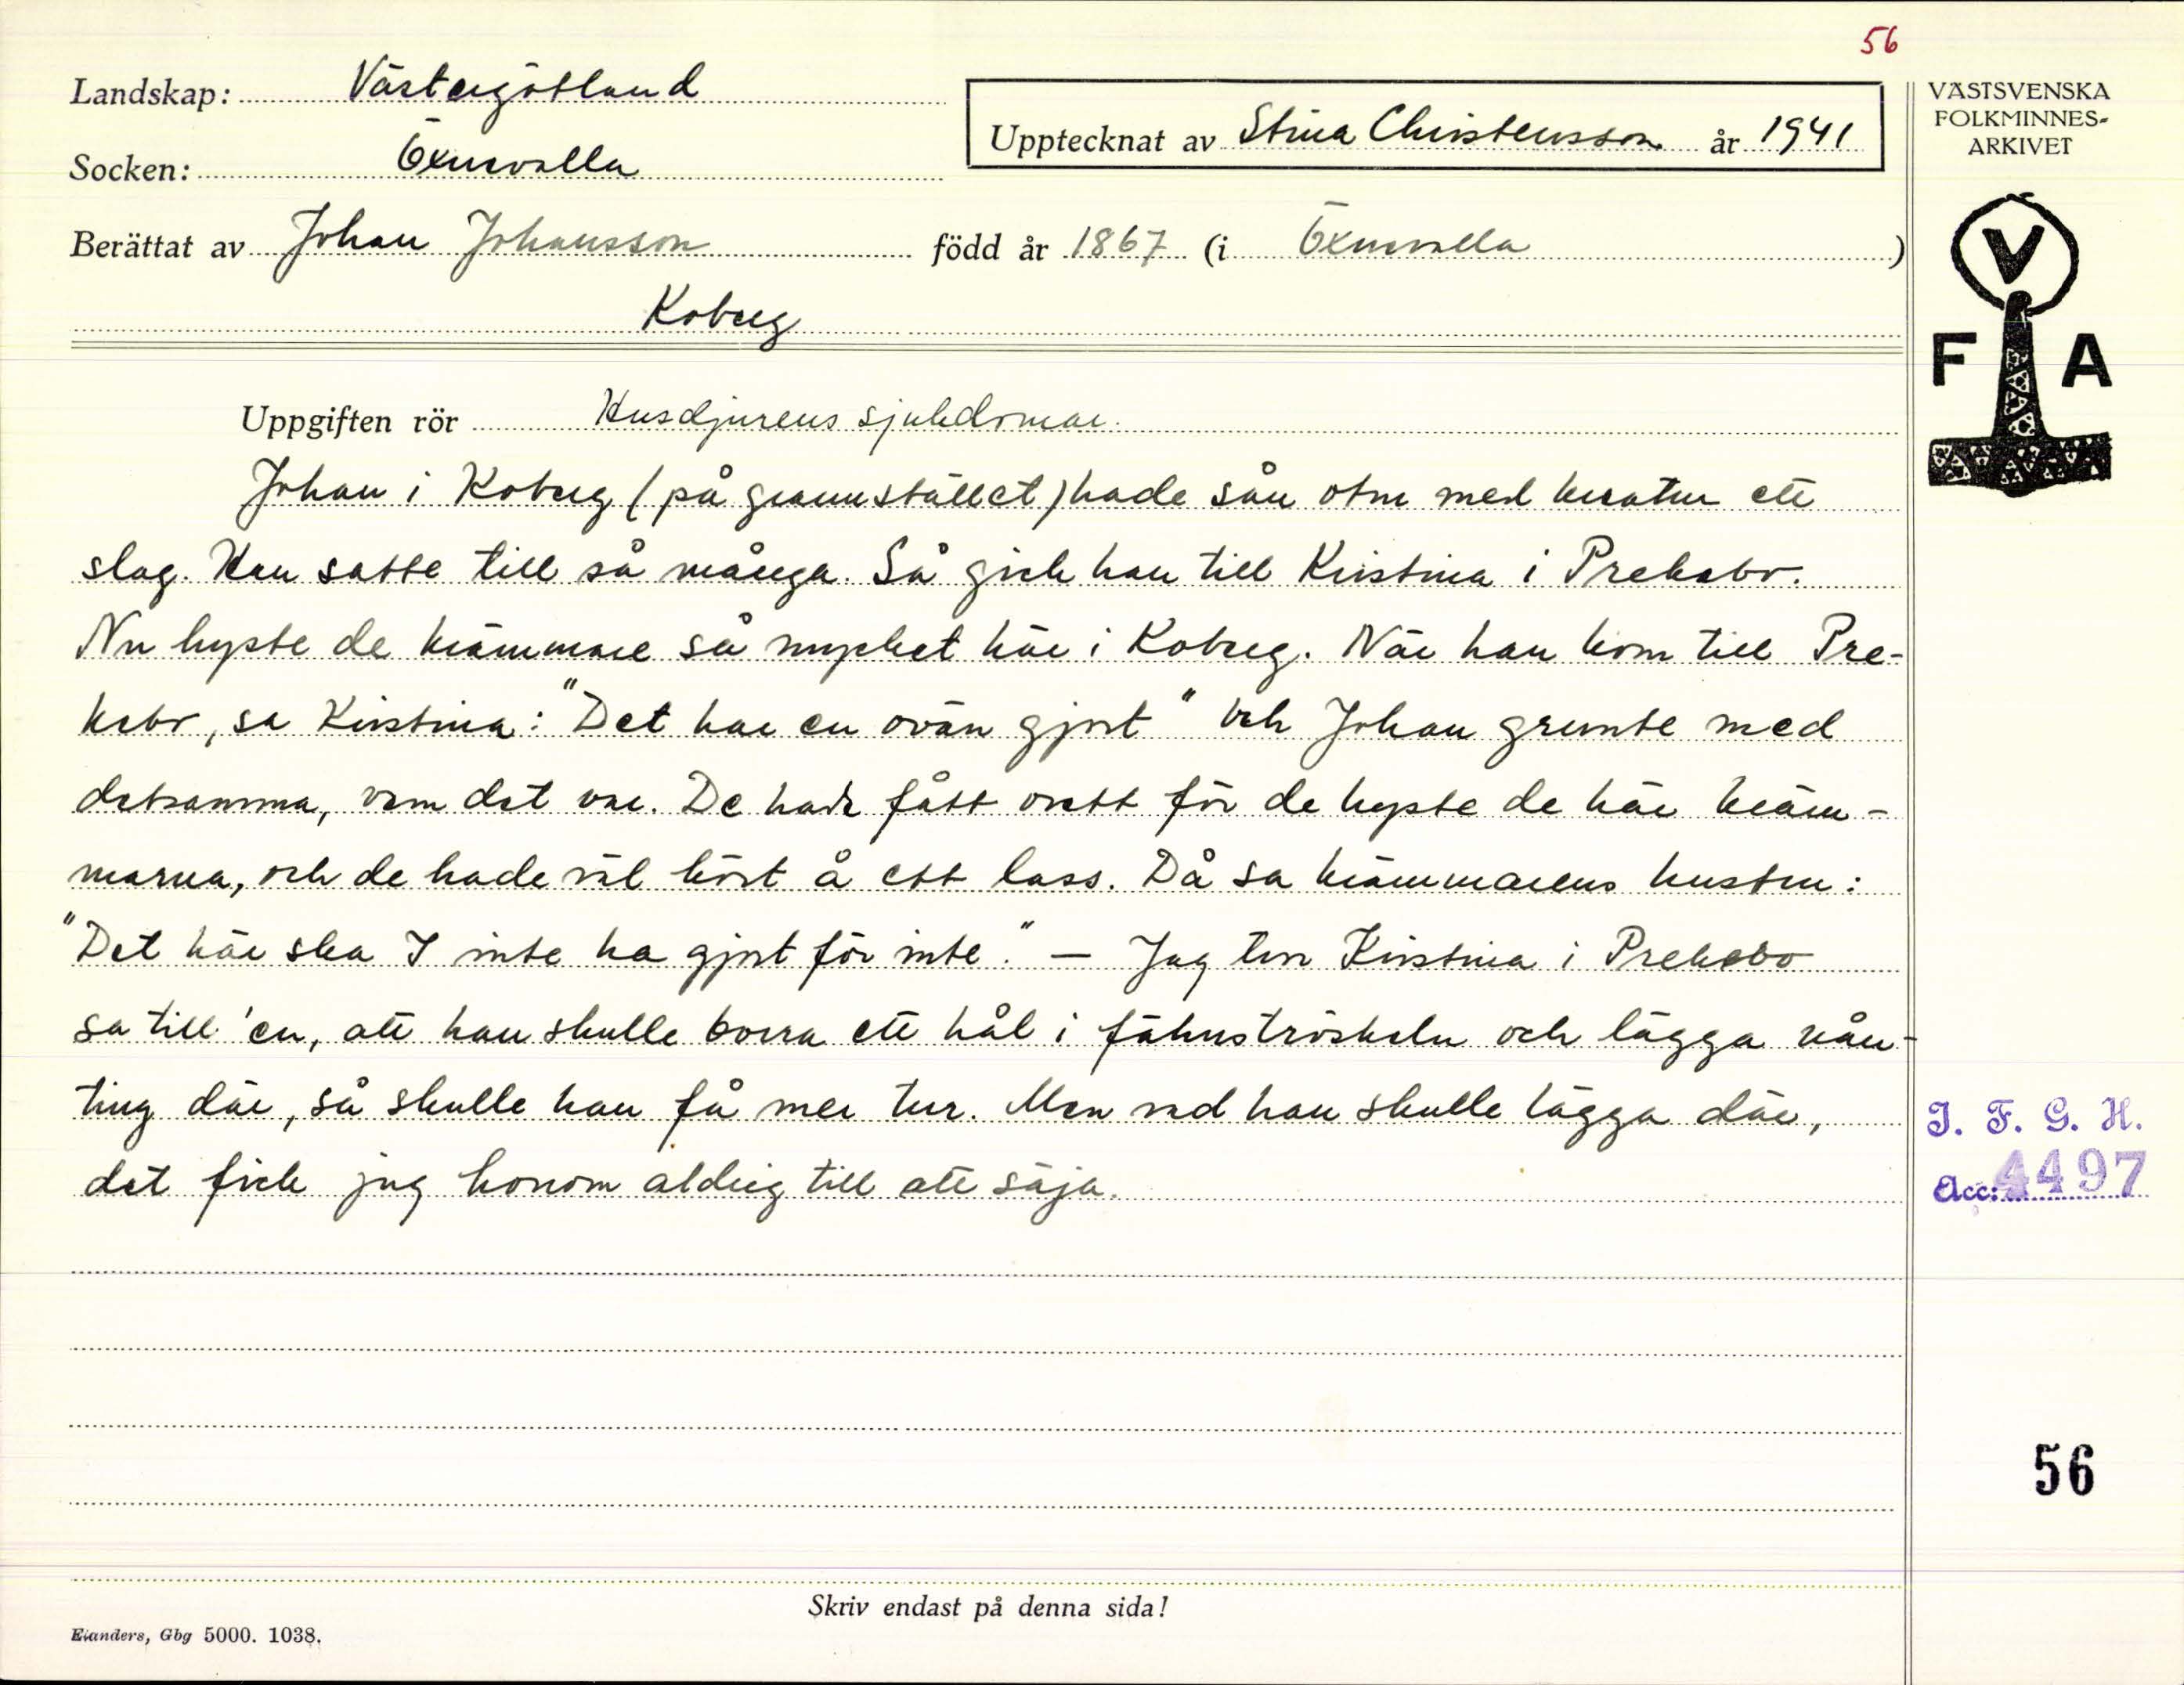 56
Landskap: Västergötland
Upptecknat av Stina Christensson år 1941
Socken: Öxnevalla
Berättat av Johan Johansson född år 1867 (i Öxnevalla)
Koberg
VÄSTSVENSKA
FOLKMINNES-
ARKIVET
V
F A
Uppgiften rör Husdjurens sjukdomar.
Johan i Koberg (på grannstället) hade sån otur med kreatur ett
slag. Han satte till så många. Så gick han till Kristina i Prekebo.
Nu hyste de krämmare så mycket här i Koberg. När han kom till Pre-
kebo, sa Kristina: "Det har en ovän gjort" och Johan grunte med
detsamma, vem det var. De hade fått orätt för de hyste de här kräm-
marna, och de hade väl kört å ett lass. Då sa krämmarens hustru:
"Det här ska I inte ha gjort för inte." — Jag tror Kristina i Prekebo
sa till 'en, att han skulle borra ett hål i fähuströskeln och lägga nån-
ting där, så skulle han få mer tur. Men vad han skulle lägga där,
det fick jag honom aldrig till att säja.
I. F. G. H.
Acc: 4497
56
Skriv endast på denna sida!
Elanders, Gbg 5000. 1038.